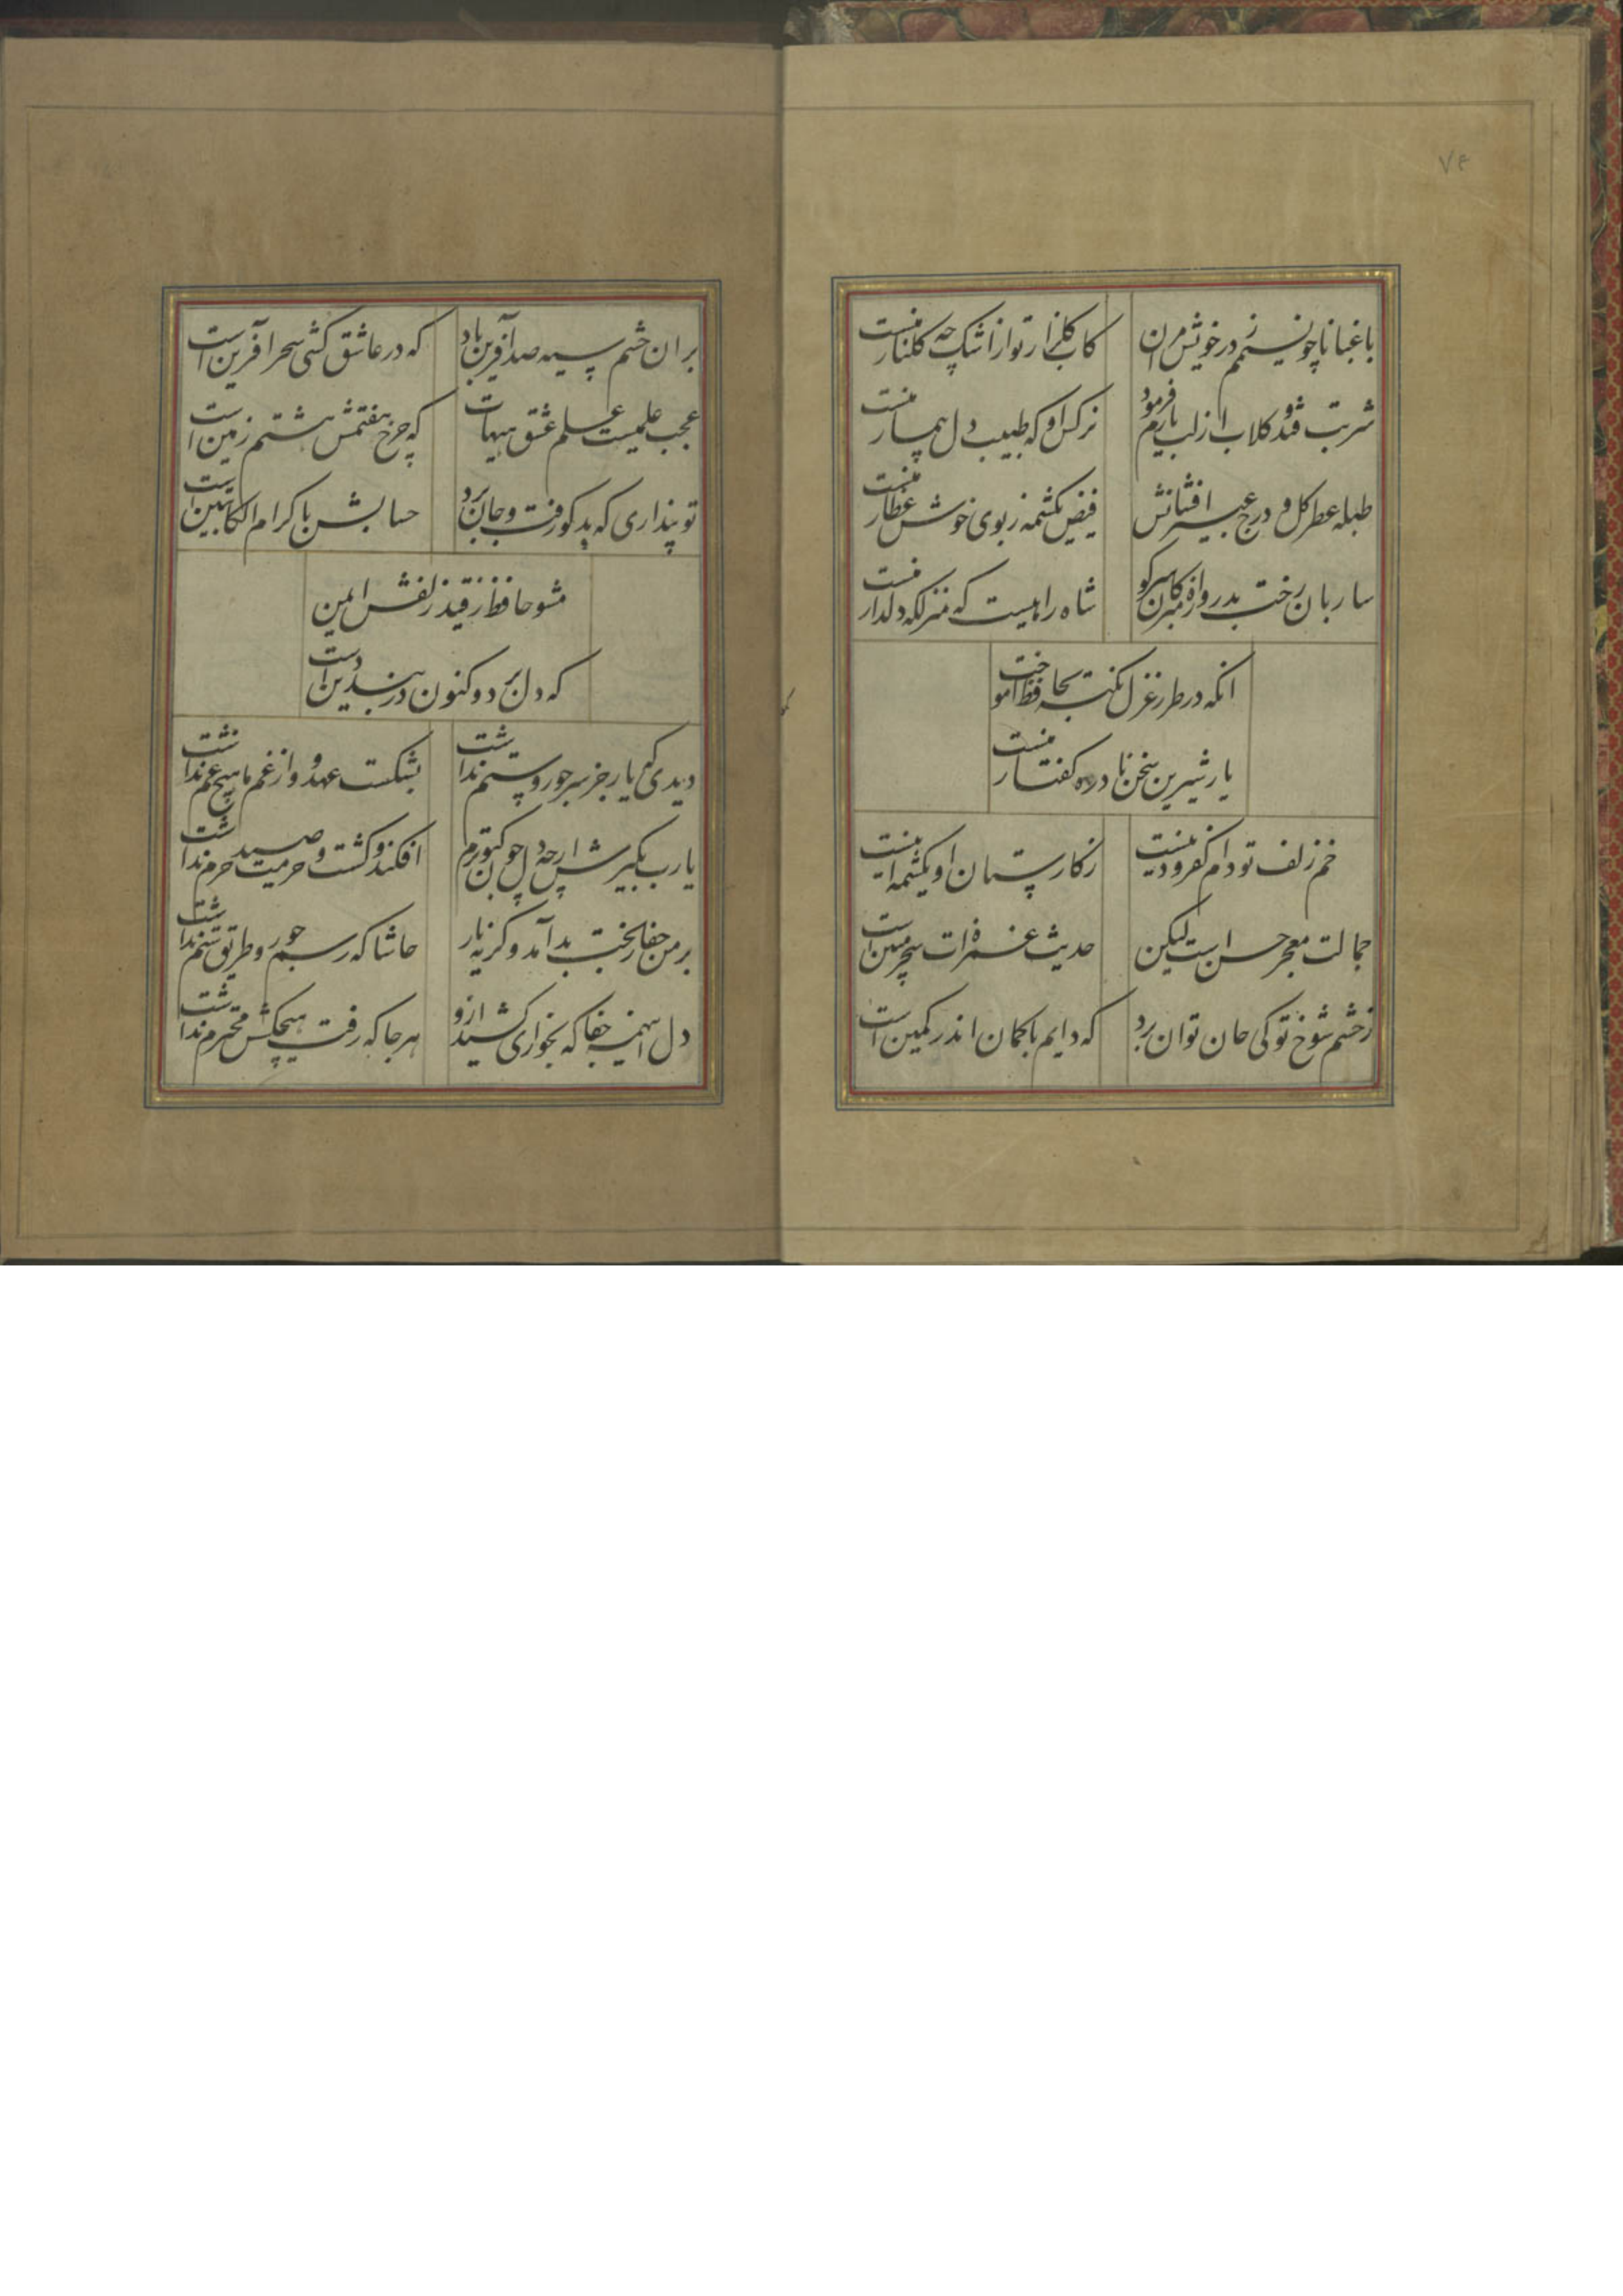 ۷۴
باغبانا چو نسیمم ز در خویش مران
کاب گلزار تو از اشک چه گلنار منست
شربت قند و گلاب از لب یارم فرمود
نرکس او که طبیب دل بیمار منست
طبله عطر کل و درج عبیر افشانش
فیض یکشمه ز بوی خوش عطار منست
ساربان رخت بدروازه مبر کان سر کو
شاه راهیست که منزلکه دلدار منست
انکه در طرز غزل نکته بحافظ اموخت
یار شیرین سخن نادره کفتار منست
خم زلف تو دام کفر و دینست
ز کارستان او یکشمه اینست
جمالت معجز حسن است لیکن
حدیث غمزه ات سحر مبین است
ز چشم شوخ تو کی جان توان برد
که دایم باکمان اندر کمین است
بران چشم سیه صد آفرین باد
که در عاشق کشی سحر آفرین است
عجب علمیست علم عشق هیهات
که چرخ هفتمش هشتم زمین است
تو پنداری که بد کو رفت و جان برد
حسابش با کرام الکاتبین است
مشو حافظ ز قید زلفش ایمن
که دل برد و کنون در بند دین است
دیدی که یار جز سر جور و ستم نداشت
بشکست عهد و از غم ما هیچ غم نداشت
یارب مگیرش ار چه دل چون کبوترم
افکند و کشت و حرمت صید حرم نداشت
بر من جفا ز بخت بد آمد وگرنه یار
حاشا که رسم جور و طریق ستم نداشت
دل اینهمه جفا که بخواری کشید ازو
هر جا که رفت هیچکسش محترم نداشت